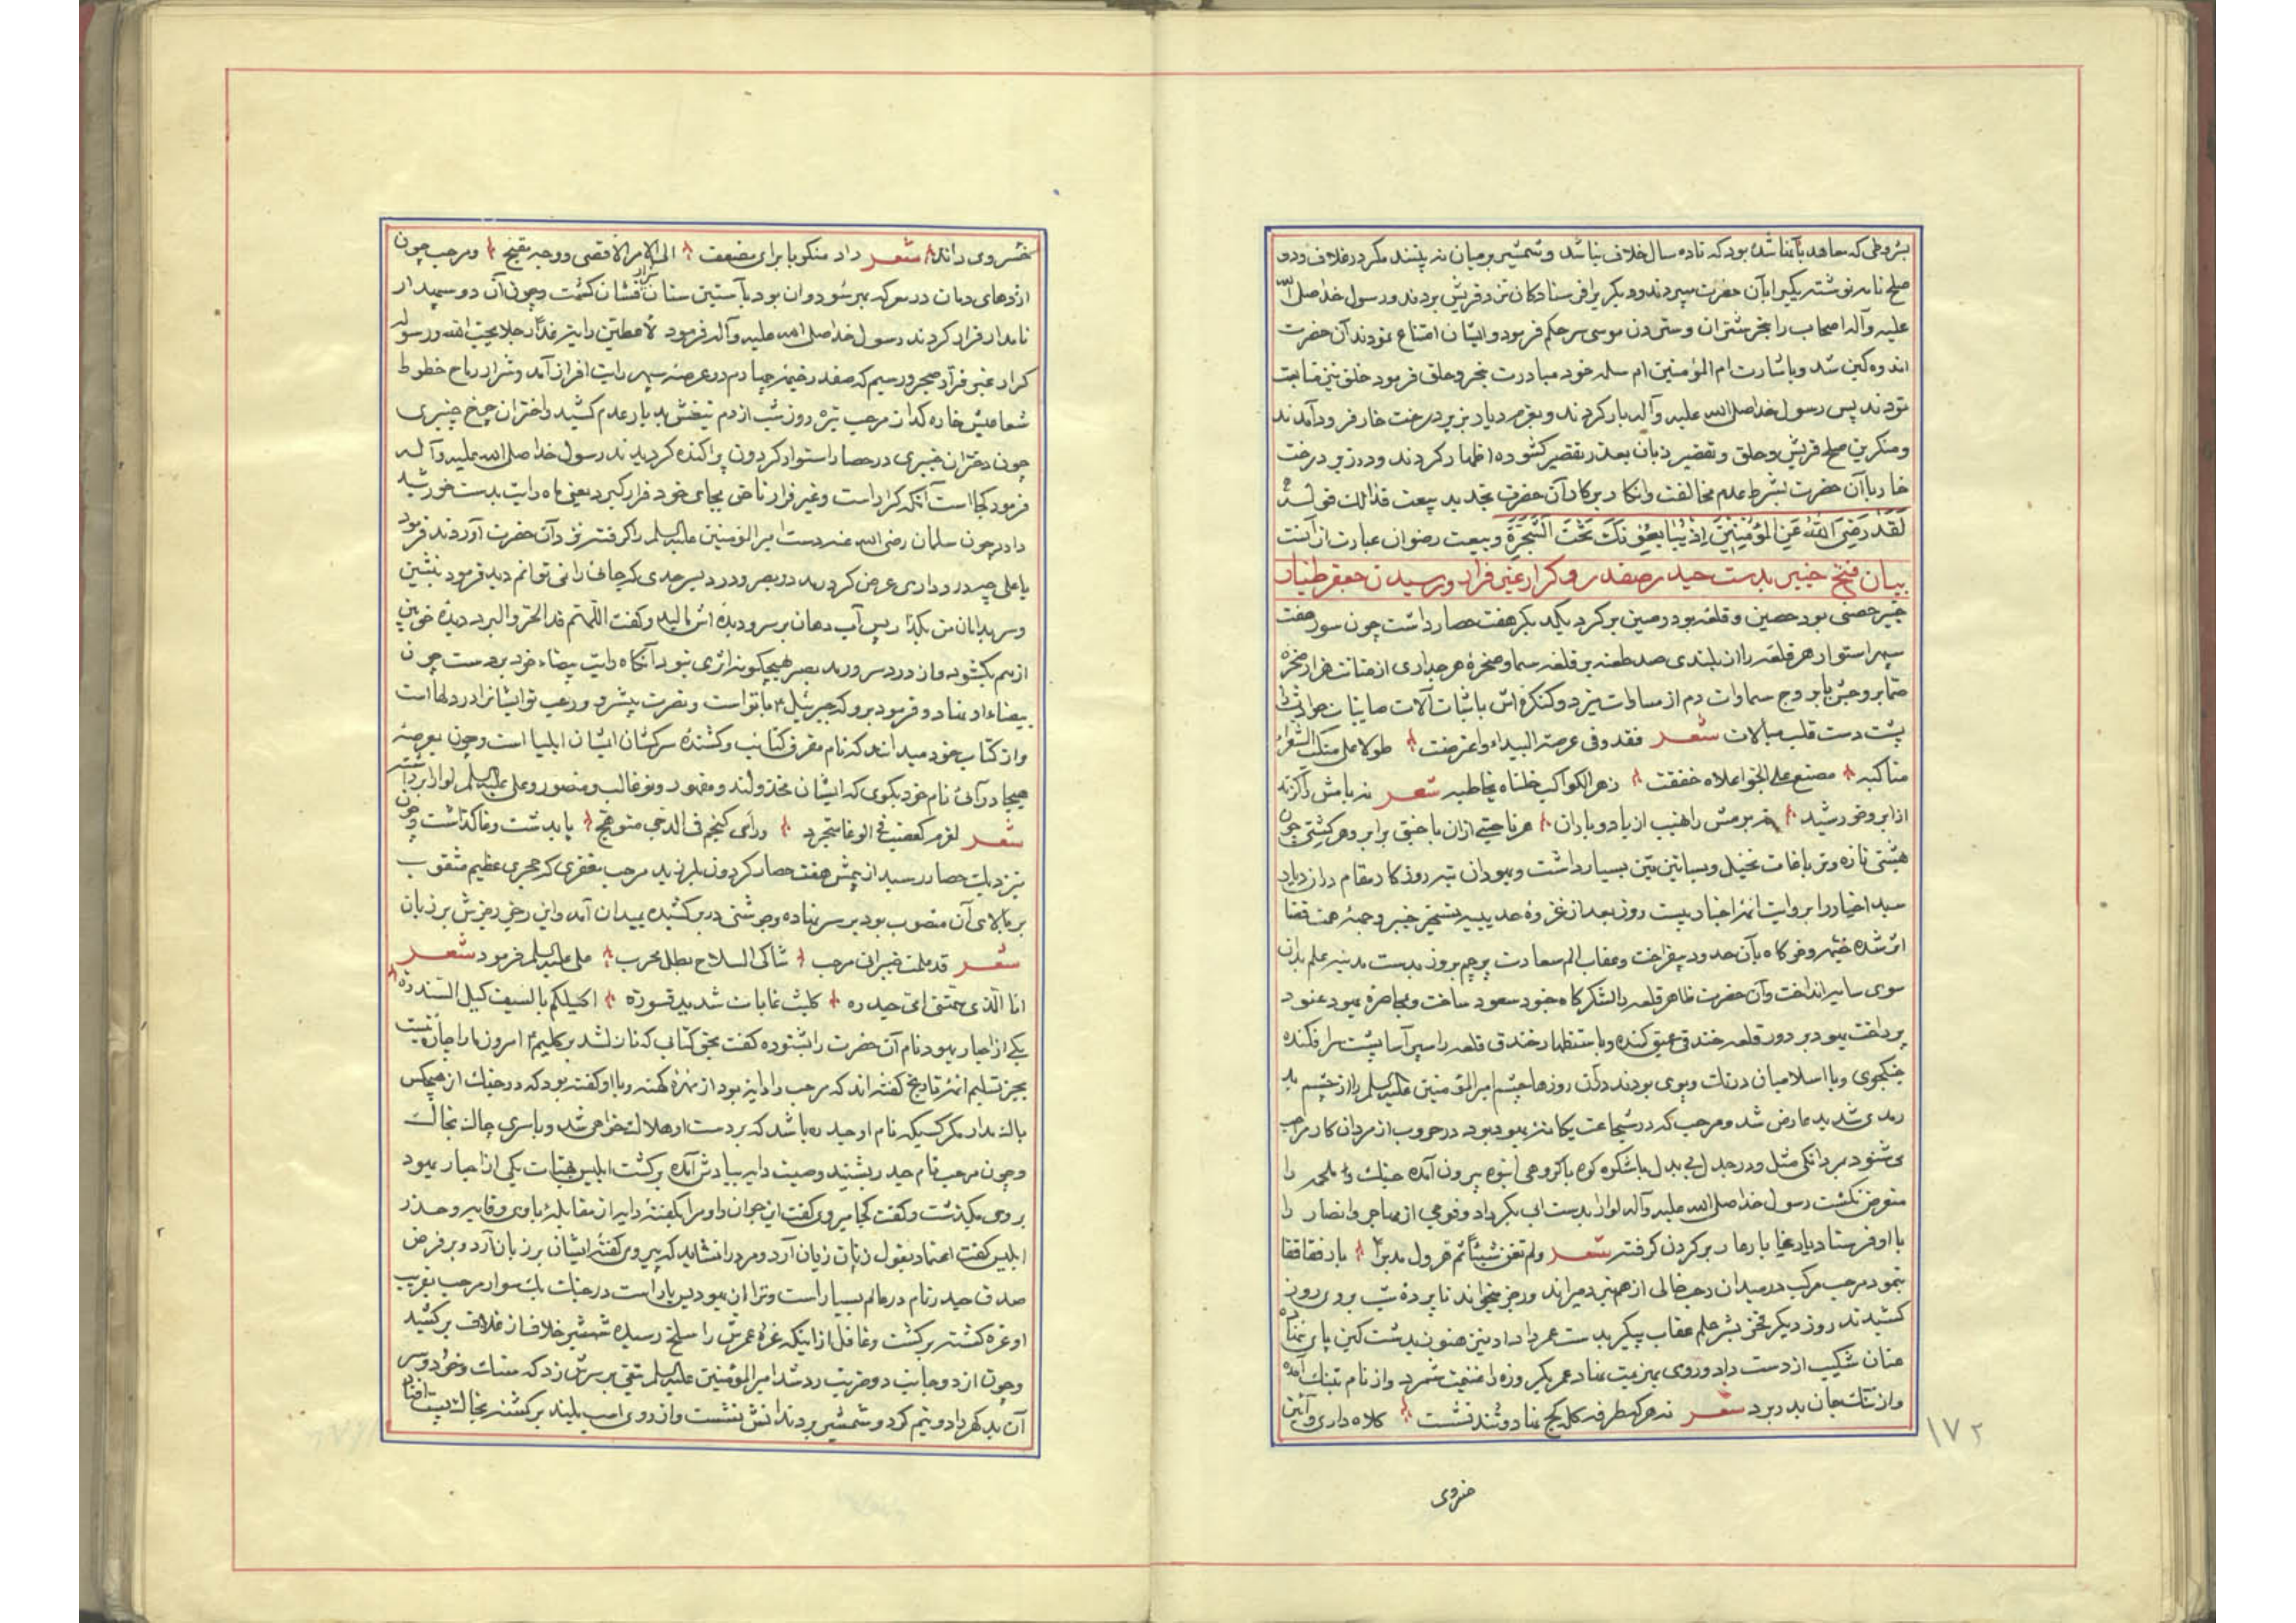 بشروطی که معاهد بآنها شده بود که تا ده سال خلاف نباشد و شمشیر بر میان نه پلنند مگر در غلاف و دو
صلح نامه نوشته یکیرا بآن حضرت سپردند و دیگریرا فرستادکان نزد قریش بردند و رسول خدا صلی الله
علیه و آله اصحاب را بنحر شتران و ستردن موسی سر حکم فرمود و ایشان امتناع نمودند آن حضرت
اندوه کین شد و باشارت ام المؤمنین ام سلمه خود مبادرت بنحر و حلق فرمود خلق نیز متابعت
نمودند پس رسول خدا صلی الله علیه و آله بار کردند و بعزم دیار بزیر درخت خار فرود آمدند
و منکرین صلح قریش و حلق و تقصیر زبان بعذر تقصیر کشوده اظهار کردند و در زیر درخت
خار باآن حضرت بشرط عدم مخالفت و انکار بر کار آن حضرت تجدید بیعت فذالك قوله
لَقَدْ رَضِیَ اللّهُ عَنِ المُؤمِنِینَ اِذْ یُبَایِعُونَكَ تَحْتَ الشَّجَرَةِ و بیعت رضوان عبارت از آنست
بیان فتح خیبر بدست حیدر صفدر و کرار غیر فرار و رسیدن جعفر طیار
خیبر حصنی بود حصین و قلعه بود رصین بر کرد یکدیگر هفت حصار داشت چون سور هفت
سپهر استوار هر قلعه را از بلندی صد طعنه بر قلعه سما و صخره هر جداری از متانت هزار صخره
صما بروجش با بروج سماوات دم از مساوات میزد و کنکره اش باثبات آلات
پشت دست قلب مبالات شعر فقد وفی عرصة البیداء واعترضت ۸ طولا علی منکب الشعراء
مناکبه ۸ مصنع علی الجو اعلاه خفقت ۸ زهر الکواکب خلناه یخاطبه شعر نه بامش را گزند
از ابر و خورشید ۸ نه بومش را نهیب از باد و باران ۸ هر ناحیتی از آن با جنتی برابر و هر کشتی چون
هشتی تازه و تر باغات نخیل و بساتین بسیار داشت و یهودان تیره روزگار مقام در آن دیار
سید اخیار را بروایت ائمه اخبار بیست روز بعد از غزوه حدیبیه بتسخیر خیبر وجهه همت قضا
اثر شده خیمه و خرکاه بآن حدود بیفراخت و عقاب الم سعادت پرچم بروز بدست مدینه علم بدان
سوی سایه انداخت و آن حضرت ظاهر قلعه را لشکر کاه جنود سعود ساخت و بمحاصره یهود عنود
پرداخت یهود بر دور قلعه خندقی عمیق کنده و باستظهار خندق قلعه را سپر آسا پشت سر افکنده
جنکجوی و با اسلامیان در تك و پوی بودند در آن روزها چشم امیر المؤمنین علیه السلم را از چشم بد
رمدی شدید عارض شد و مرحب که در شجاعت یکانه یهود بود در حروب از مردان کار مرحب
می شنود بمردانکی مثل و در جدل بی بدل باشکوه کوه با کروهی انبوه بیرون آمده جنك را
متعرض نکشت رسول خدا صلی الله علیه و آله لوا را بدست ابی بکر داد و فوجی از مهاجر و انصار را
با او فرستاد یار غیا با رعار بر کردن کرفته شعر ولم تغن شیئا ثم فر ول مدبرا ۸ یار فقا قفا
نمود مرحب مرکب در میدان رحب خالی از هم نبرد میراند و رجز میخواند تا پرده شب بروی روز
کشیدند روز دیگر فخر بشر علم عقاب پیکر بدست عمر داد او نیز هنوز بدشت کین پای ننهاده
عنان شکیب از دست داد و روی بهزیمت نهاد عمر یکروزه را غنیمت شمرد و از نام بننك آمده
و از تنك جان بدر برد شعر نه هر که طرف کله کج نهاد و تند نشست ۸ کلاه داری و آئین
۱۷۲
خسروی
خسروی داند ۸ شعر داد منکوبا برای مضعف ۸ الی الامر الاقصی و وجه مقبح ۸ و مرحب چون
اژدهای دمان در معرکه بهر سو دوان بود بآستین سنان شرار فشان کشت و چون آن دو سپهدار
نامدار فرار کردند رسول خدا صلی الله علیه و آله فرمود لاعطین رایتی غدا رجلا یحب الله و رسوله
کرار غیر فرار صحرا و رسیم که صفدر خیمه چهارم در عرصه سپهر رایت افراز آمد و شرار رماح خطوط
شعاعیش خاره کدا مرحب تیره روز شب از دم تیغش بدیار عدم کشید و اختران چرخ چنبری
چون دختران خیبری در حصار استوار کردون پراکنده کردیدند رسول خدا صلی الله علیه و آله
فرمود کجا است آنکه کرار است و غیر فرار تا حق بجای خود قرار کیرد یعنی ماه رایت بدست خورشید
داد چون سلمان رضی الله عنه دست امیر المؤمنین علیه السلم را کرفته نزد آن حضرت آوردند فرمود
یا علی چه درد داری عرض کرد رمد در بصر و درد بسر بحدی که جائی را نمی توانم دید فرمود بنشین
و سر بدامان من بگذار پس آب دهان بر سر و دیده اش مالید و کفت اللهم قه الحر و البرد دیده خونین
از هم بکشود و از درد سر و رمد بصر هیچکونه اثری نبود آنکاه رایت بیضاء خود بر دست چون
بیضاء او نهاد و فرمود برو که جبرئیل ۴ با تو است و نصرت پیشرو و رعب تو ایشانرا در دلها است
و از کتاب خود میدانند که نام مفرق کتائب و کشنده سرکشان ایشان ایلیا است و چون بعرصه
هیجا در آئی نام خود بکوی که ایشان مخذولند و مقهور و تو غالب و منصور و علی علیه السلم لوا را برداشته
شعر لعزم کعضب فی الوغا متجرد ۸ و رای کنجم فی الدجی متوهج ۸ پا بدشت وغا گذاشت و چون
نزدیك حصار رسید از بیمش هفت حصار کردون بلرزید مرحب مغفری که حجری عظیم مثقوب
بر بالای آن منصوب بود بر سر نهاده و جوشنی در بر کشیده بمیدان آمد و این رجز بر زبان
شعر قد علمت خیبر انی مرحب ۸ شاکی السلاح بطل مجرب ۸ علی علیه السلم فرمود شعر
انا الذی سمتنی امی حیدره ۸ کلیث غابات شدید قسورة ۸ اکیلکم بالسیف کیل السندره ۸
یکی از احبار یهود نام آن حضرت را شنوده کفت بحق کتابی که نازل شد بر کلیم ۴ امروز ما را چاره نیست
بجز تسلیم ائمه تاریخ کفته اند که مرحب را دایه بود از کهنه و با او کفته بود که در جنك از هیچکس
باك مدار مکر کسیکه نام او حیدره باشد که بر دست او هلاك خواهی شد
و چون مرحب نام حیدر بشنید وصیت دایه بیادش آمده بر کشت ابلیس بهیات یکی از احبار یهود
بروی مکذشت و کفت کجا میروی کفت این جوان را و مرا بکفته دایه از مقابله با وی و حذر
ابلیس کفت اعتماد بقول زنان زیان آرد و مرد را نشاید که پیروی کفته ایشان بر زبان آرد و بر فرض
صدق حیدر نام در عالم بسیار است و ترا از یهود یار است در جنك یك سوار مرحب بفریب
او غره کشته بر کشت و غافل از اینکه غره عمرش را سلخ رسیده شمشیر خلاف از غلاف بر کشید
و چون از دو جانب دو ضربت رد شد امیر المؤمنین علیه السلم تیغی بر سرش زد که سنك و خود و سر
آن بد کهر را دو نیم کرد و شمشیر بر دندانش نشست و از روی اسب بلند بر کشته بخاك پست افتاد